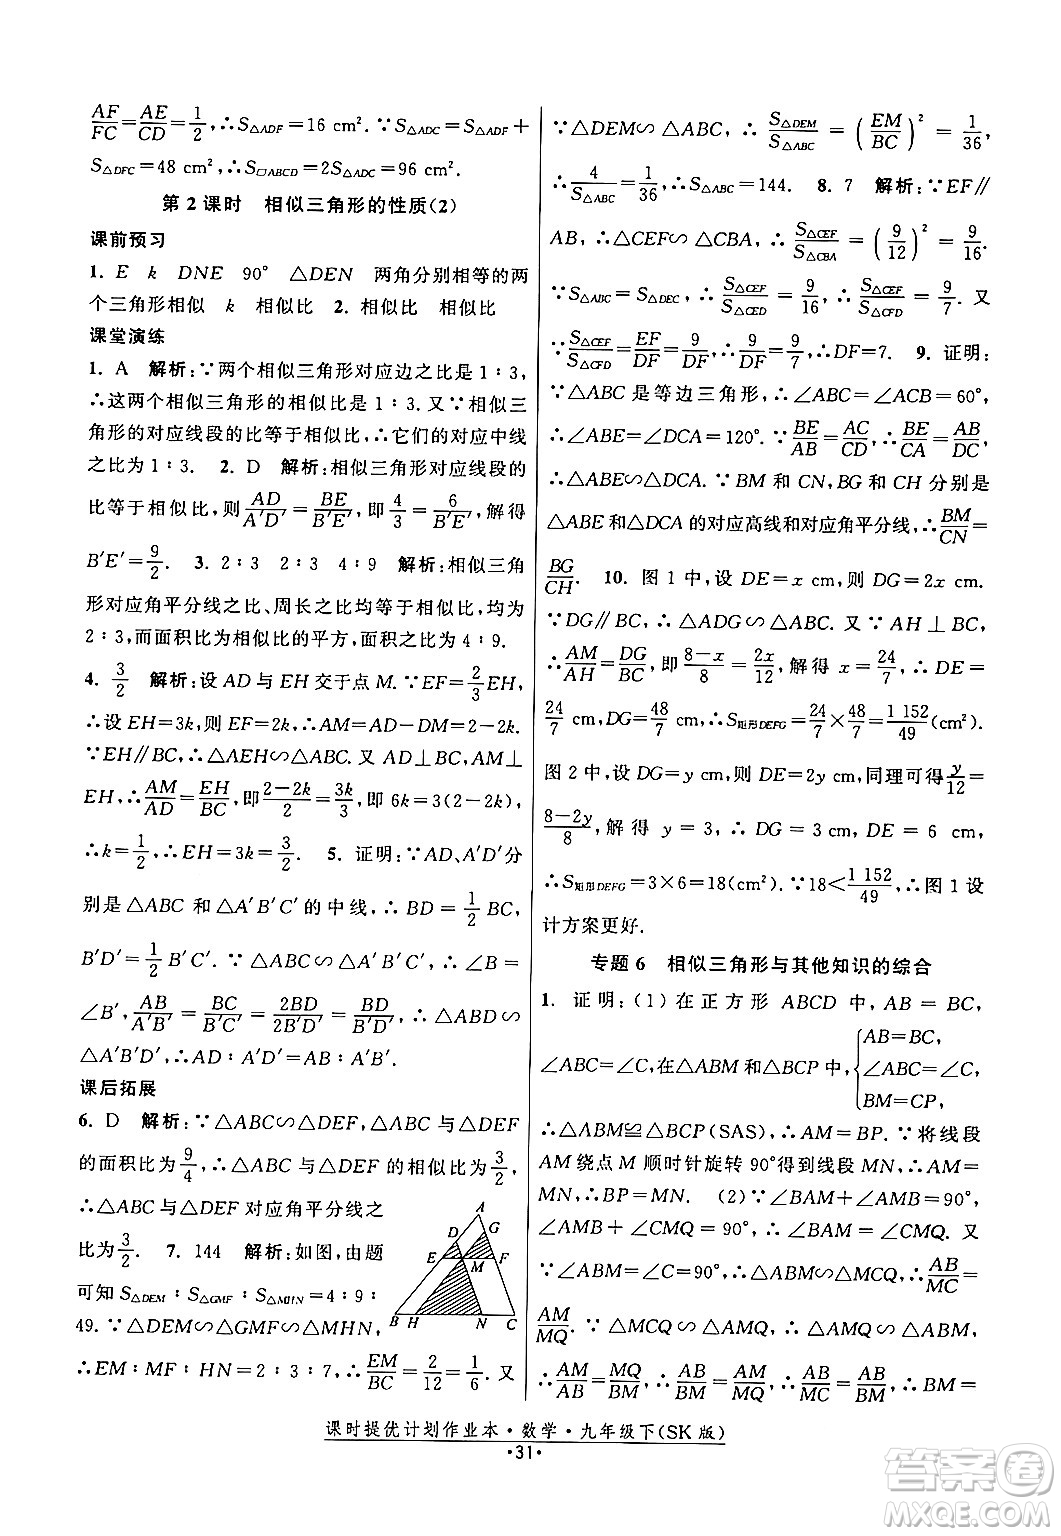 AF/FC=AE/CD=1/2,∴S△ADF=16 cm².∵S△ADC=S△ADF+
S△DFC=48 cm²,∴S▱ABCD=2S△ADC=96 cm².
第 2 课时 相似三角形的性质(2)
课前预习
1. E k DNE 90° △DEN 两角分别相等的两
个三角形相似 k 相似比 2. 相似比 相似比
课堂演练
1. A 解析:∵两个相似三角形对应边之比是 1∶3,
∴这两个相似三角形的相似比是 1∶3.又∵相似三
角形的对应线段的比等于相似比,∴它们的对应中线
之比为 1∶3. 2. D 解析:相似三角形对应线段的
比等于相似比,则AD/A′D′=BE/B′E′,即4/3=6/B′E′,解得
B′E′=9/2. 3. 2∶3 2∶3 4∶9 解析:相似三角
形对应角平分线之比、周长之比均等于相似比,均为
2∶3,而面积比为相似比的平方,面积之比为 4∶9.
4. 3/2 解析:设 AD 与 EH 交于点 M.∵EF=2/3EH,
∴设 EH=3k,则 EF=2k,∴AM=AD-DM=2-2k.
∵EH∥BC,∴△AEH∽△ABC.又 AD⊥BC,AM⊥
EH,∴AM/AD=EH/BC,即(2-2k)/2=3k/3,即 6k=3(2-2k),
∴k=1/2,∴EH=3k=3/2. 5. 证明:∵AD、A′D′分
别是△ABC 和△A′B′C′的中线,∴BD=1/2BC,
B′D′=1/2B′C′.∵△ABC∽△A′B′C′,∴∠B=
∠B′,AB/A′B′=BC/B′C′=2BD/2B′D′=BD/B′D′,∴△ABD∽
△A′B′D′,∴AD∶A′D′=AB∶A′B′.
课后拓展
6. D 解析:∵△ABC∽△DEF,△ABC 与△DEF
的面积比为9/4,∴△ABC 与△DEF 的相似比为3/2,
∴△ABC 与△DEF 对应角平分线之
比为3/2. 7. 144 解析:如图,由题
可知 S△DEM∶S△GMF∶S△MHN=4∶9∶
49.∵△DEM∽△GMF∽△MHN,
∴EM∶MF∶HN=2∶3∶7,∴EM/BC=2/12=1/6.又
A
D G
E M F
B H N C
∵△DEM∽△ABC,∴S△DEM/S△ABC=(EM/BC)²=1/36,
∴4/S△ABC=1/36,∴S△ABC=144. 8. 7 解析:∵EF∥
AB,∴△CEF∽△CBA,∴S△CEF/S△CBA=(9/12)²=9/16.
∵S△ABC=S△DEC,∴S△CEF/S△CED=9/16,∴S△CEF/S△CFD=9/7.又
∵S△CEF/S△CFD=EF/DF=9/DF,∴9/DF=9/7,∴DF=7. 9. 证明:
∵△ABC 是等边三角形,∴∠ABC=∠ACB=60°,
∴∠ABE=∠DCA=120°.∵BE/AB=AC/CD,∴BE/CA=AB/DC,
∴△ABE∽△DCA.∵BM 和 CN,BG 和 CH 分别是
△ABE 和△DCA 的对应高线和对应角平分线,∴BM/CN=
BG/CH. 10. 图 1 中,设 DE=x cm,则 DG=2x cm.
∵DG∥BC,∴△ADG∽△ABC.又∵AH⊥BC,
∴AM/AH=DG/BC,即(8-x)/8=2x/12,解得 x=24/7,∴DE=
24/7 cm,DG=48/7 cm,∴S矩形DEFG=24/7×48/7=1 152/49(cm²).
图 2 中,设 DG=y cm,则 DE=2y cm,同理可得y/12=
(8-2y)/8,解得 y=3,∴DG=3 cm,DE=6 cm,
∴S矩形DEFG=3×6=18(cm²).∵18<1 152/49,∴图 1 设
计方案更好.
专题 6 相似三角形与其他知识的综合
1. 证明:(1)在正方形 ABCD 中,AB=BC,
∠ABC=∠C,在△ABM 和△BCP 中,{AB=BC,
∠ABC=∠C,
BM=CP,
∴△ABM≌△BCP(SAS),∴AM=BP.∵将线段
AM 绕点 M 顺时针旋转 90°得到线段 MN,∴AM=
MN,∴BP=MN. (2)∵∠BAM+∠AMB=90°,
∠AMB+∠CMQ=90°,∴∠BAM=∠CMQ.又
∠ABM=∠C=90°,∴△ABM∽△MCQ,∴AB/MC=
AM/MQ.∵△MCQ∽△AMQ,∴△AMQ∽△ABM,
∴AM/AB=MQ/BM,∴AB/BM=AM/MQ,∴AB/MC=AB/BM,∴BM=
课时提优计划作业本·数学·九年级下(SK 版)
·31·
答案圈
MXQE.COM